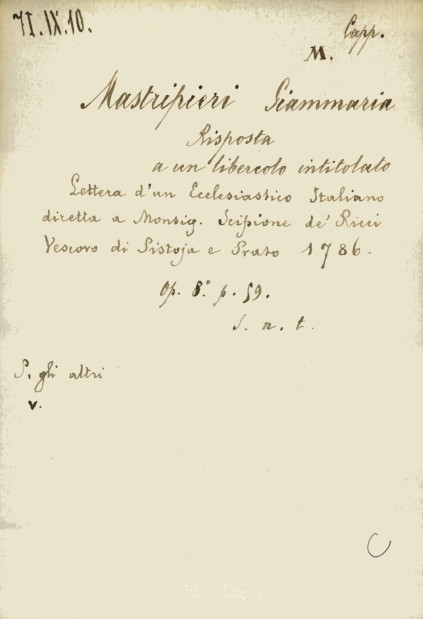 71.IX.10.
Capp.
M.
Mastripieri Giammaria
Risposta
a un libercolo intitolato
Lettera d'un Ecclesiastico Italiano
diretta a Monsig. Scipione de' Ricci
Vescovo di Pistoja e Prato 1786.
Op. 8° p. 59.
S. n. t.
S. gli altri
v.